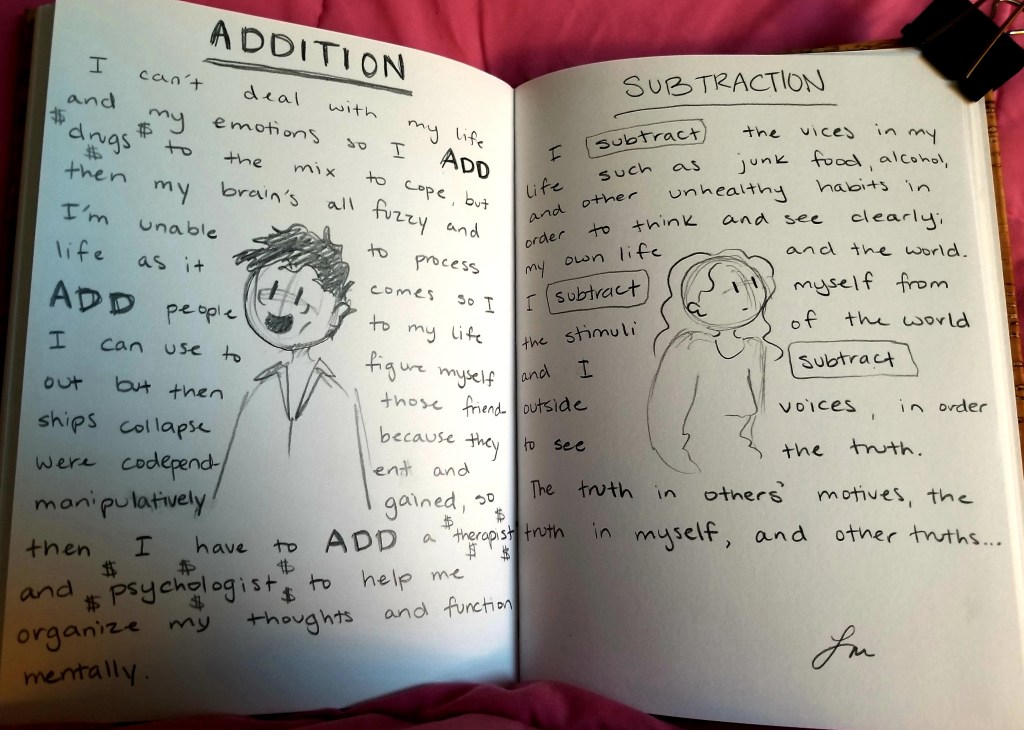 ADDITION
I can't deal with my life
and my emotions so I ADD
$drugs$ to the mix to cope, but
then my brain's all fuzzy and
I'm unable to process
life as it comes so I
ADD people to my life
I can use to figure myself
out but then those friend-
ships collapse because they
were codepend- ent and
manipulatively gained, so
then I have to ADD a $therapist$
and $psychologist$ to help me
organize my thoughts and function
mentally.
SUBTRACTION
I subtract the vices in my
life such as junk food, alcohol,
and other unhealthy habits in
order to think and see clearly;
my own life and the world.
I subtract myself from
the stimuli of the world
and I subtract
outside voices, in order
to see the truth.
The truth in others' motives, the
truth in myself, and other truths...